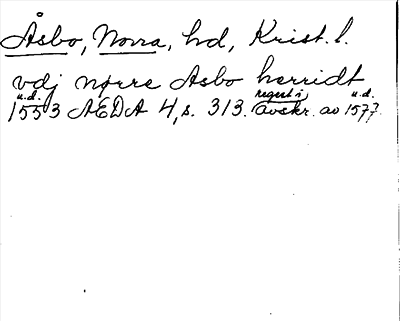 Åsbo, Norra, hd, Krist. l.
vdj nørre Asbo herridt
u.d. regest i u.d.
1553 AEDA 4, s. 313. avskr. av 1577.